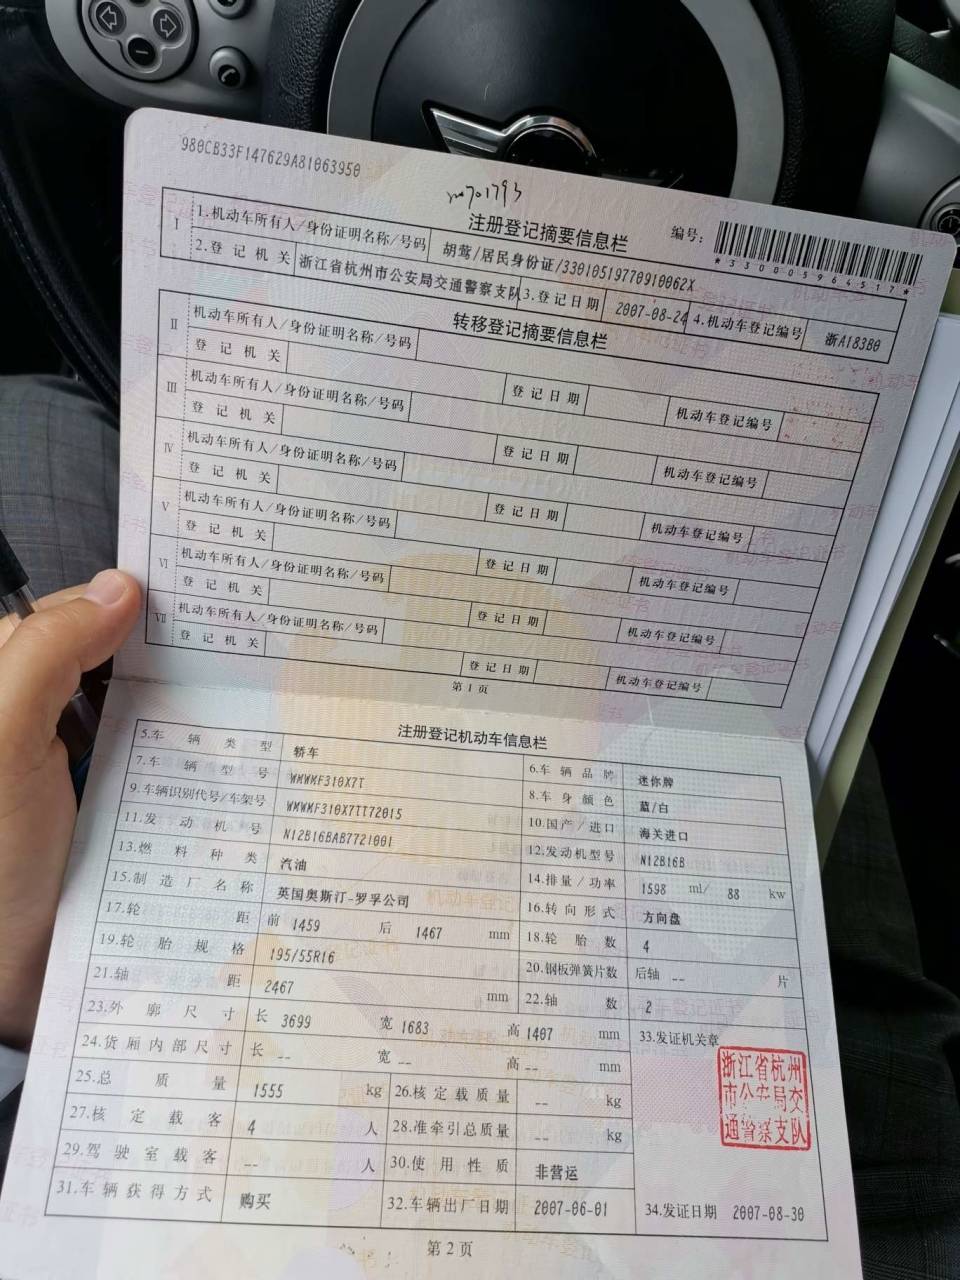 980CB33F147629A81063950
注册登记摘要信息栏
编号:
*330005964517*
I 1.机动车所有人/身份证明名称/号码 胡莺/居民身份证/33010519770910062X
2.登记机关 浙江省杭州市公安局交通警察支队 3.登记日期 2007-08-24 4.机动车登记编号 浙A183B0
转移登记摘要信息栏
II 机动车所有人/身份证明名称/号码
登记机关 登记日期 机动车登记编号
III 机动车所有人/身份证明名称/号码
登记机关 登记日期 机动车登记编号
IV 机动车所有人/身份证明名称/号码
登记机关 登记日期 机动车登记编号
V 机动车所有人/身份证明名称/号码
登记机关 登记日期 机动车登记编号
VI 机动车所有人/身份证明名称/号码
登记机关 登记日期 机动车登记编号
VII 机动车所有人/身份证明名称/号码
登记机关 登记日期 机动车登记编号
第1页
注册登记机动车信息栏
5.车辆类型 轿车 6.车辆品牌 迷你牌
7.车辆型号 WMWMF310X7T 8.车身颜色 蓝/白
9.车辆识别代号/车架号 WMWMF310X7TT72015 10.国产/进口 海关进口
11.发动机号 N12B16BAB7721001 12.发动机型号 N12B16B
13.燃料种类 汽油 14.排量/功率 1598 ml/ 88 kw
15.制造厂名称 英国奥斯汀-罗孚公司 16.转向形式 方向盘
17.轮距 前 1459 后 1467 mm 18.轮胎数 4
19.轮胎规格 195/55R16 20.钢板弹簧片数 后轴 -- 片
21.轴距 2467 mm 22.轴数 2
23.外廓尺寸 长 3699 宽 1683 高 1407 mm 33.发证机关章
24.货厢内部尺寸 长 -- 宽 -- 高 -- mm
浙江省杭州
市公安局交
通警察支队
25.总质量 1555 kg 26.核定载质量 -- kg
27.核定载客 4 人 28.准牵引总质量 -- kg
29.驾驶室载客 -- 人 30.使用性质 非营运
31.车辆获得方式 购买 32.车辆出厂日期 2007-06-01 34.发证日期 2007-08-30
第2页